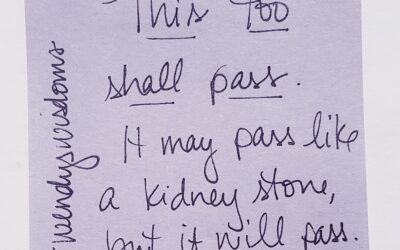 This too
shall pass.
It may pass like
a kidney stone,
but it will pass.
wendyswisdoms